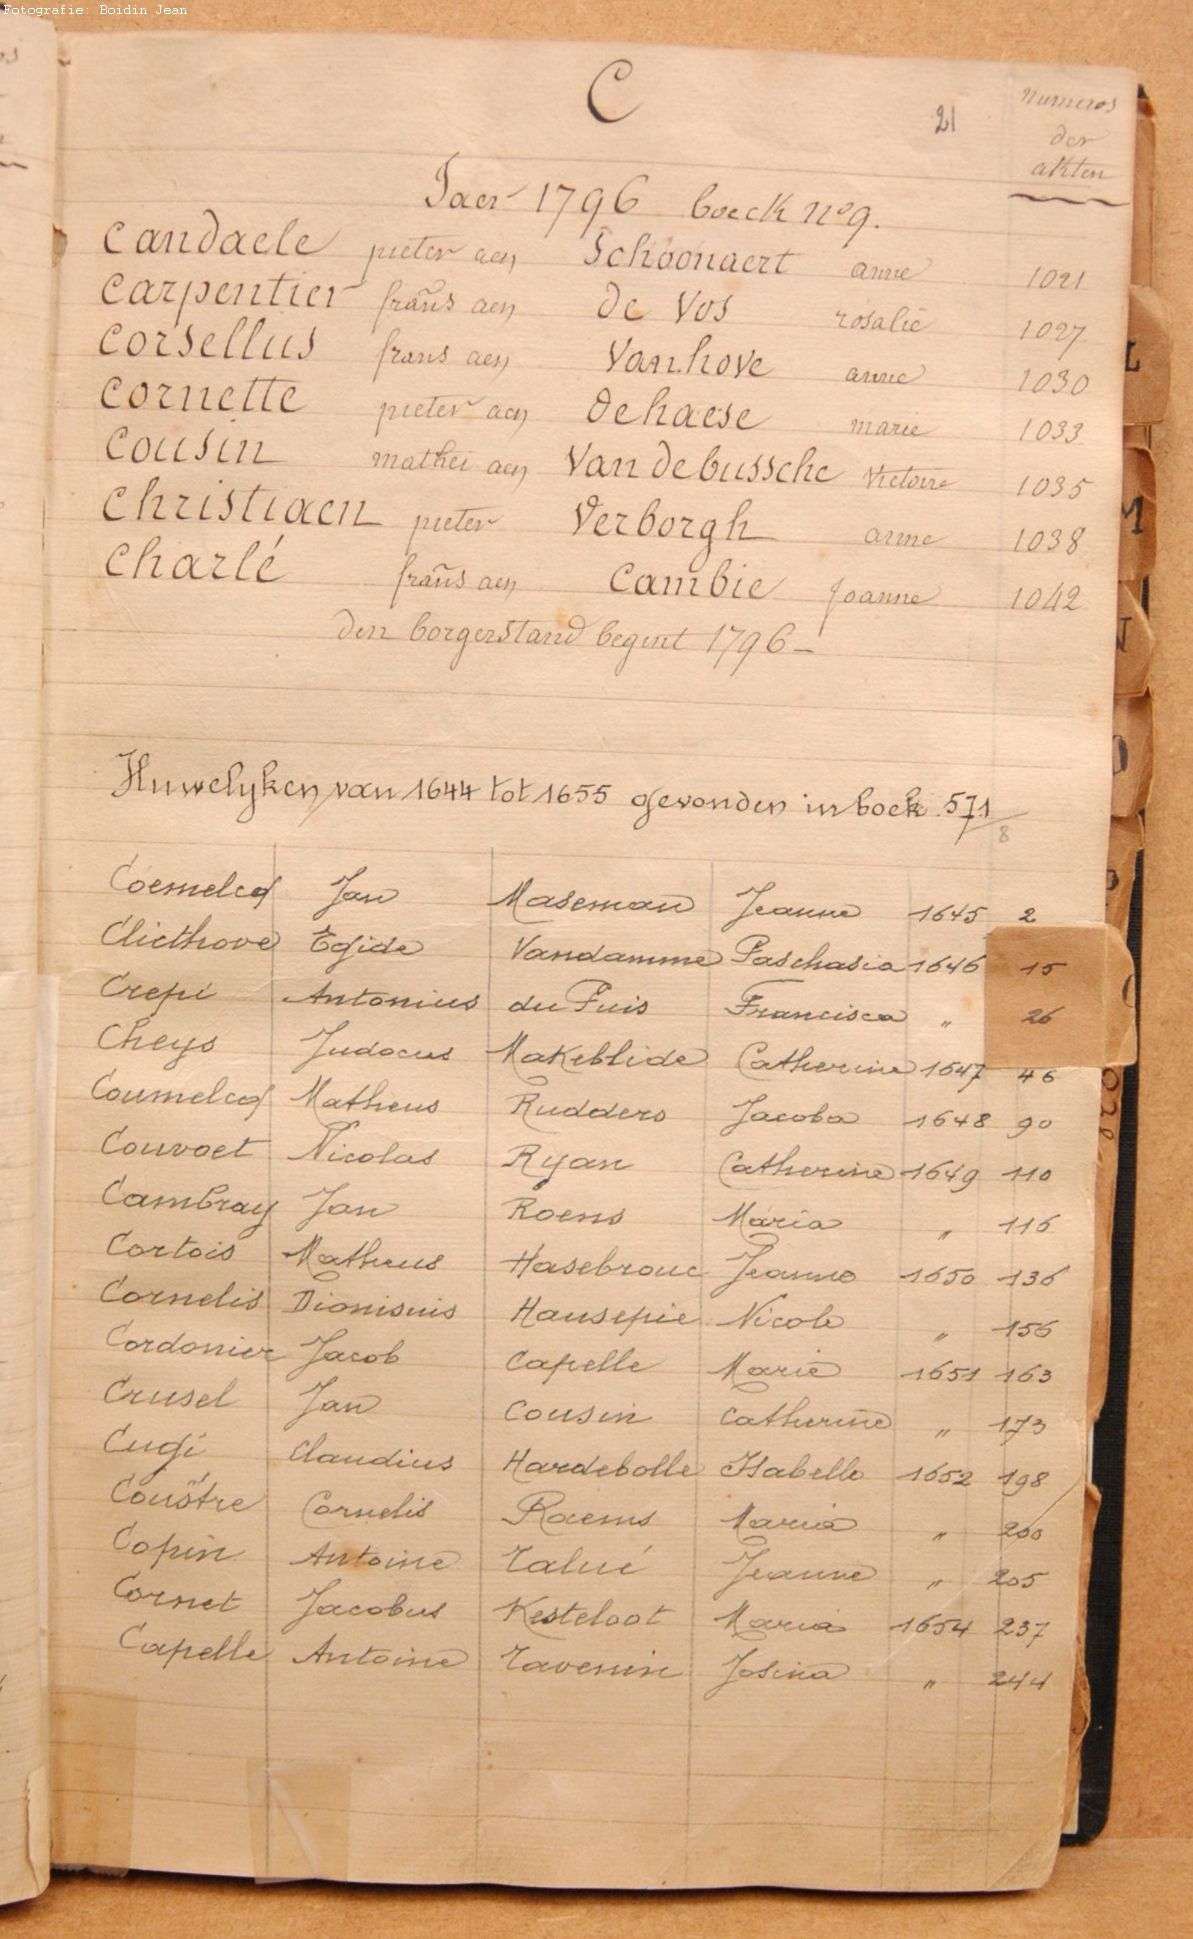 Fotografie: Boidin Jean
C
21
numeros
der
akten
Jaer 1796 boeck n° 9.
Candaele pieter aen Schoonaert anne 1021
Carpentier frans aen de Vos rosalie 1027
Corsellus frans aen Vanhove anne 1030
Cornette pieter aen dehaese marie 1033
Cousin mathei aen Vandebussche Victoire 1035
Christiaen pieter Verborgh anne 1038
Charlé frans aen Cambie Joanne 1042
den borgerstand begint 1796 –
Huwelijken van 1644 tot 1655 gevonden in boek 571/8
Jan Maseman Jeanne 1645 2
Clicthove Egide Vandamme Paschasia 1646 15
Crepi Antonius du Puis Francisca " 26
Cheys Judocus Makeblide Catherine 1647 46
Matheus Rudders Jacoba 1648 90
Couvoet Nicolas Ryan Catherine 1649 110
Cambray Jan Roens Maria " 116
Cortois Matheus Hasebrouc Jeanne 1650 136
Cornelis Dionisuis Hausepie Nicole " 156
Cordonier Jacob Capelle Marie 1651 163
Crusel Jan Cousin Catherine " 173
Cugi Claudius Hardebolle Isabelle 1652 198
Coustre Cornelis Raems Maria " 200
Copin Antoine Talué Jeanne " 205
Cornet Jacobus Kesteloot Maria 1654 237
Capelle Antoine Tavenin Josina " 244
L
M
N
O